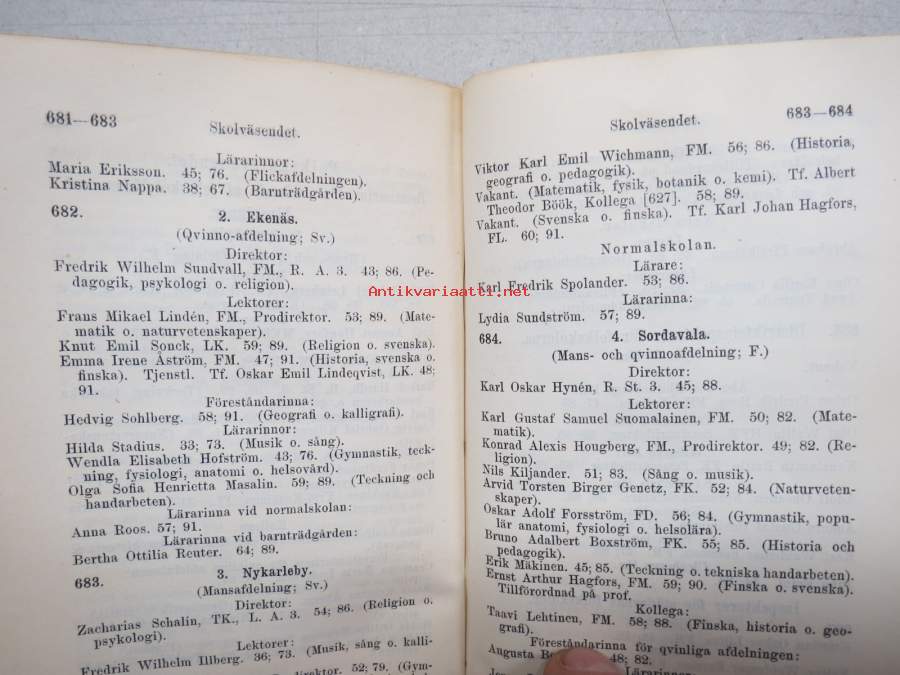 681—683
Skolväsendet.
Lärarinnor:
Maria Eriksson. 45; 76. (Flickafdelningen).
Kristina Nappa. 38; 67. (Barnträdgården).
682.
2. Ekenäs.
(Qvinno-afdelning; Sv.)
Direktor:
Fredrik Wilhelm Sundvall, FM., R. A. 3. 43; 86. (Pe-
dagogik, psykologi o. religion).
Lektorer:
Frans Mikael Lindén, FM., Prodirektor. 53; 89. (Mate-
matik o. naturvetenskaper).
Knut Emil Sonck, LK. 59; 89. (Religion o. svenska).
Emma Irene Åström, FM. 47; 91. (Historia, svenska o.
finska). Tjenstl. Tf. Oskar Emil Lindeqvist, LK. 48;
91.
Föreståndarinna:
Hedvig Sohlberg. 58; 91. (Geografi o. kalligrafi).
Lärarinnor:
Hilda Stadius. 33; 73. (Musik o. sång).
Wendla Elisabeth Hofström. 43; 76. (Gymnastik, teck-
ning, fysiologi, anatomi o. helsovård).
Olga Sofia Henrietta Masalin. 59; 89. (Teckning och
handarbeten).
Lärarinna vid normalskolan:
Anna Roos. 57; 91.
Lärarinna vid barnträdgården:
Bertha Ottilia Renter. 64; 89.
683.
3. Nykarleby.
(Mansafdelning; Sv.)
Direktor:
Zacharias Schalin, TK., L. A. 3. 54; 86. (Religion o.
psykologi).
Lektorer:
Fredrik Wilhelm Illberg. 36; 73. (Musik, sång o. kalli-
direktor. 52; 79. (Gym-
683—684
Skolväsendet.
Viktor Karl Emil Wichmann, FM. 56; 86. (Historia,
geografi o. pedagogik).
Vakant. (Matematik, fysik, botanik o. kemi). Tf. Albert
Theodor Böök, Kollega [627]. 58; 89.
Vakant. (Svenska o. finska). Tf. Karl Johan Hagfors,
FL. 60; 91.
Normalskolan.
Lärare:
Karl Fredrik Spolander. 53; 86.
Lärarinna:
Lydia Sundström. 57; 89.
684.
4. Sordavala.
(Mans- och qvinnoafdelning; F.)
Direktor:
Karl Oskar Hynén, R. St. 3. 45; 88.
Lektorer:
Karl Gustaf Samuel Suomalainen, FM. 50; 82. (Mate-
matik).
Konrad Alexis Hougberg, FM., Prodirektor. 49; 82. (Re-
ligion).
Nils Kiljander. 51; 83. (Sång o. musik).
Arvid Torsten Birger Genetz, FK. 52; 84. (Naturveten-
skaper).
Oskar Adolf Forsström, FD. 56; 84. (Gymnastik, popu-
lär anatomi, fysiologi o. helsolära).
Bruno Adalbert Boxström, FK. 55; 85. (Historia och
pedagogik).
Erik Mäkinen. 45; 85. (Teckning o. tekniska handarbeten).
Ernst Arthur Hagfors, FM. 59; 90. (Finska o. svenska).
Tillförordnad på prof.
Kollega:
Taavi Lehtinen, FM. 58; 88. (Finska, historia o. geo-
grafi).
Föreståndarinna för qvinliga afdelningen:
Augusta 48; 82.
Lärarinnor:
Antikvariaatti.net